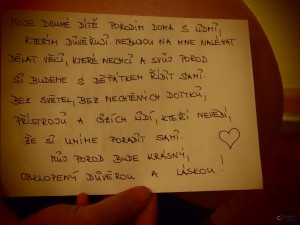 MOJE DRUHÉ DÍTĚ PORODÍM DOMA S LIDMI,
KTERÝM DŮVĚŘUJI. NEBUDOU NA MNE NALÉHAT
DĚLAT VĚCI, KTERÉ NECHCI A SVŮJ POROD
SI BUDEME S DĚŤÁTKEM ŘÍDIT SAMI.
BEZ SVĚTEL, BEZ NECHTĚNÝCH DOTYKŮ,
PŘÍSTROJŮ A CIZÍCH LIDÍ, KTEŘÍ NEVĚDÍ,
ŽE SI UMÍME PORADIT SAMI.
MŮJ POROD BUDE KRÁSNÝ,
OBKLOPENÝ DŮVĚROU A LÁSKOU!